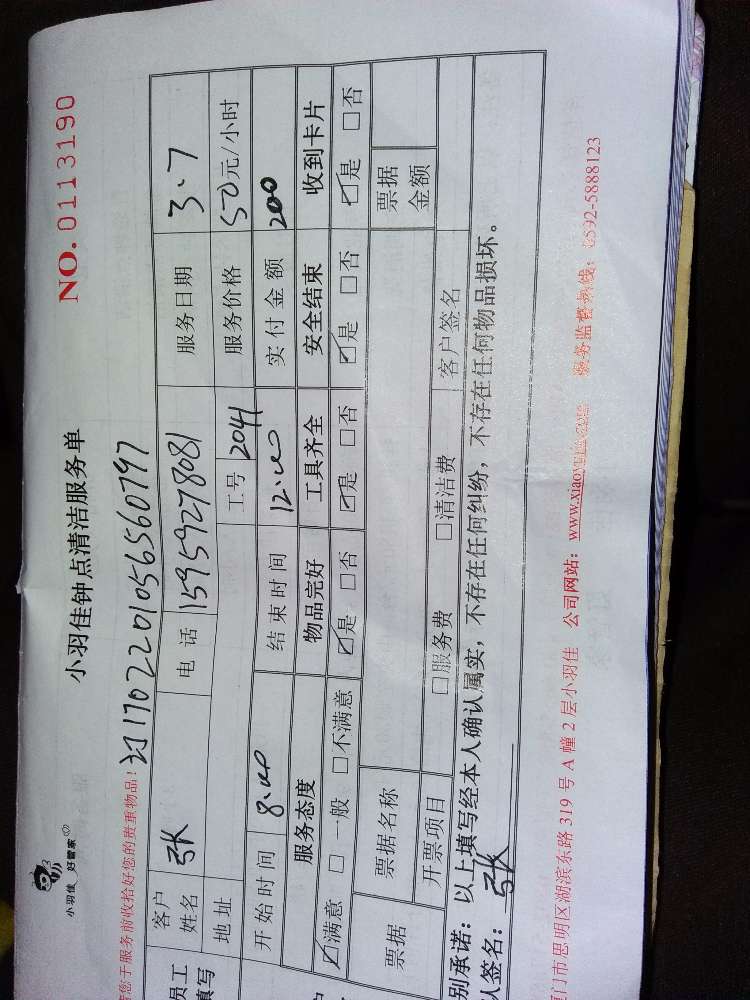 小羽佳 好管家
小羽佳钟点清洁服务单
NO.0113190
您于服务前收拾好您的贵重物品!
1702201056560797
员工
填写
客户姓名 张 电话 15959278081 服务日期 3.7
地址 工号 2041 服务价格 50元/小时
开始时间 8:00 结束时间 12:00 实付金额 200
服务态度 物品完好 工具齐全 安全结束 收到卡片
☑满意 □一般 □不满意 ☑是 □否 ☑是 □否 ☑是 □否 ☑是 □否
票据 票据名称 票据金额
开票项目 □服务费 □清洁费 客户签名
别承诺:以上填写经本人确认属实,不存在任何纠纷,不存在任何物品损坏。
人签名:张
厦门市思明区湖滨东路 319 号 A 幢 2 层小羽佳 公司网站:www.xiaoyujia.com 服务监督热线:0592-5888123